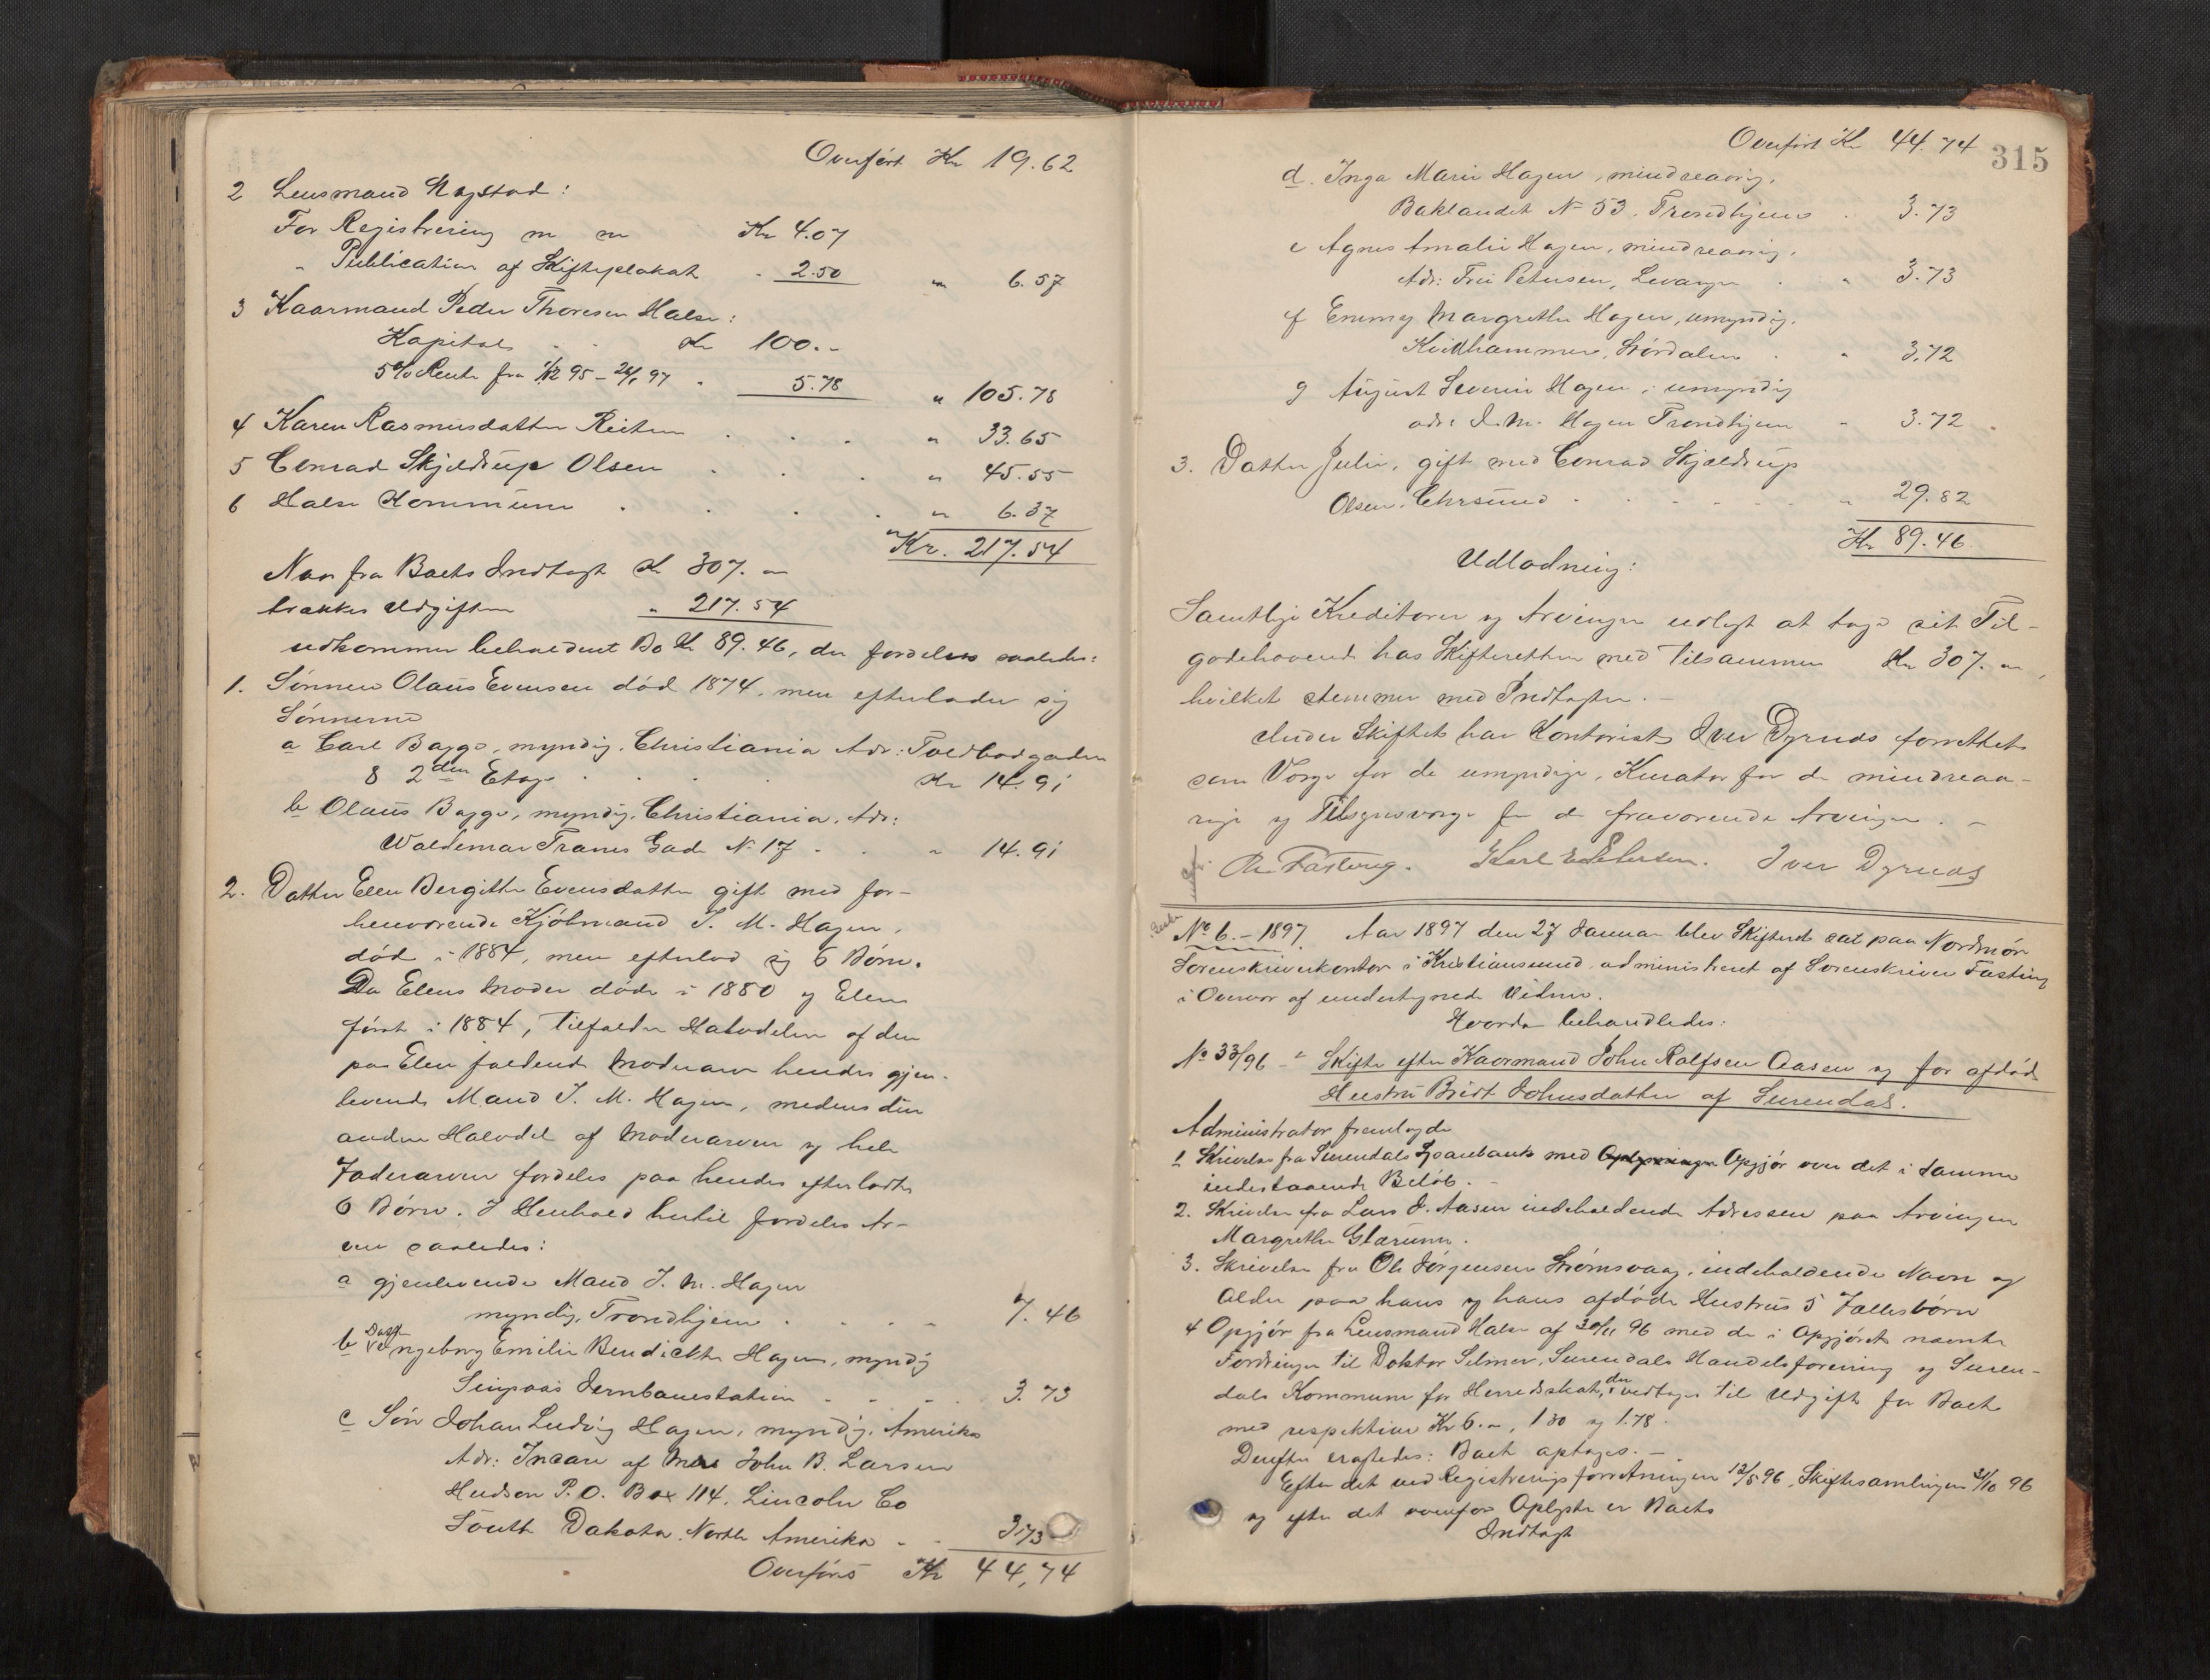 Overført Kr 19.62
2 Lensmand Magstad:
For Registrering m m Kr 4.07
" Publication af Skifteplakat " 2.50 " 6.57
3 Kaarmand Peder Thoresen Halse:
Kapital . . Kr 100.-
5% Rente fra 1/12 95 - 26/1 97 " 5.78 " 105.78
4 Karen Rasmusdatter Reiten . . . " 33.65
5 Conrad Skjeldrup Olsen . . . " 45.55
6 Halse Kommune . . . . " 6.37
Kr. 217.54
Naar fra Boets Indtægt Kr 307. "
trækkes Udgiften " 217.54
udkommer beholdent Bo Kr 89.46, der fordeles saaledes:
1. Sønnen Olaus Evensen død 1874, men efterlader sig
Sønnerne
a Carl Bagge, myndig, Christiania Adr: Toldbodgaden
8 2den Etage . . . Kr 14.91
b Olaus Bagge, myndig, Christiania, Adr:
Waldemar Tranes Gade N. 17 . . " 14.91
2. Datter Elen Bergitte Evensdatter gift med for-
henværende Kjøbmand J. M. Hagen,
død i 1884, men efterlod sig 6 Børn.
Da Elens Moder døde i 1880 og Elen
først i 1884, tilfalder Halvdelen af den
paa Elen faldende Modrearv hendes gjen-
levende Mand J. M. Hagen, medens den
anden Halvdel af Modrearven og hele
Fadrearven fordeles paa hendes efterladte
6 Børn. I Henhold hertil fordeles Ar-
ven saaledes:
a gjenlevende Mand J. M. Hagen
myndig, Trondhjem . . . . 7.46
b Datter Ingeborg Emilie Bendickte Hagen, myndig
Singsaas Jernbanestation . . . 3.73
c Søn Johan Ludvig Hagen, myndig, Amerika
Adr: In care of Mrs John B. Larsen
Hudson P.O. Box 114, Lincoln Co
South Dakota, North Amerika . . 3.73
Overføres Kr 44,74
Overført Kr 44.74
315
d. Inga Marie Hagen, mindreaarig,
Baklandet N 53, Trondhjem . 3.73
e Agnes Amalie Hagen, mindreaarig,
Adr: Petersen, Levanger . " 3.73
f Emmy Margrethe Hagen, umyndig,
Kvithammer, Størdalen . " 3.72
g August Severin Hagen, umyndig
adr: J. M. Hagen Trondhjem " 3.72
3. Datter Julie, gift med Conrad Skjældrup
Olsen, Chrsund . . . . . " 29.82
Kr 89.46
Udlodning:
Samtlige Kreditorer og Arvinger udlagt at tage sit Til-
godehavende hos Skifteretten med tilsammen Kr 307. "
hvilket stemmer med Indtægten. -
Under Skiftet har Kontorist Iver Dyrnes forrettet
som Verge for de umyndige, Kurator for de mindreaa-
rige og Tilsynsverge for de fraværende Arvinger. -
Chr Fasting. Karl E Petersen. Iver Dyrnes
No 6. - 1897. Aar 1897 den 27 Januar blev Skifteret sat paa Nordmør
Sorenskriverkontor i Kristiansund, administreret af Sorenskriver Fasting
i Overvær af undertegnede Vidner.
Hvorda behandledes:
No 33/96 - Skifte efter Kaarmand John Rolfsen Aasen og før afdøde
Hustru Brit Johnsdatter af Surendal.
Administrator fremlagde
1 Skrivelse fra Surendals Sparebank med Opgjør over det i samme
indestaaende Beløb. -
2. Skrivelse fra Lars J. Aasen indeholdende Adressen paa Arvingen
Margrethe Glærum.
3. Skrivelse fra Ole Jørgensen Strømsvaag, indeholdende Navn og
Alder paa hans og hans afdøde Hustrus 5 Fællesbørn
4 Opgjør fra Lensmand Halse af 30/11 96 med de i Opgjøret nævnte
Fordringer til Doktor Selmer, Surendals Handelsforening og Suren-
dals Kommune for Herredsskat, der vedtages til Udgift for Boet
med respektive Kr 6. ", 1.30 og 1.78.
Derefter eragtedes: Boet optages. -
Efter det ved Registreringsforretningen 12/5 96, Skiftesamlingen 21/10 96
og efter det ovenfor Oplyste er Boets
Indtægt